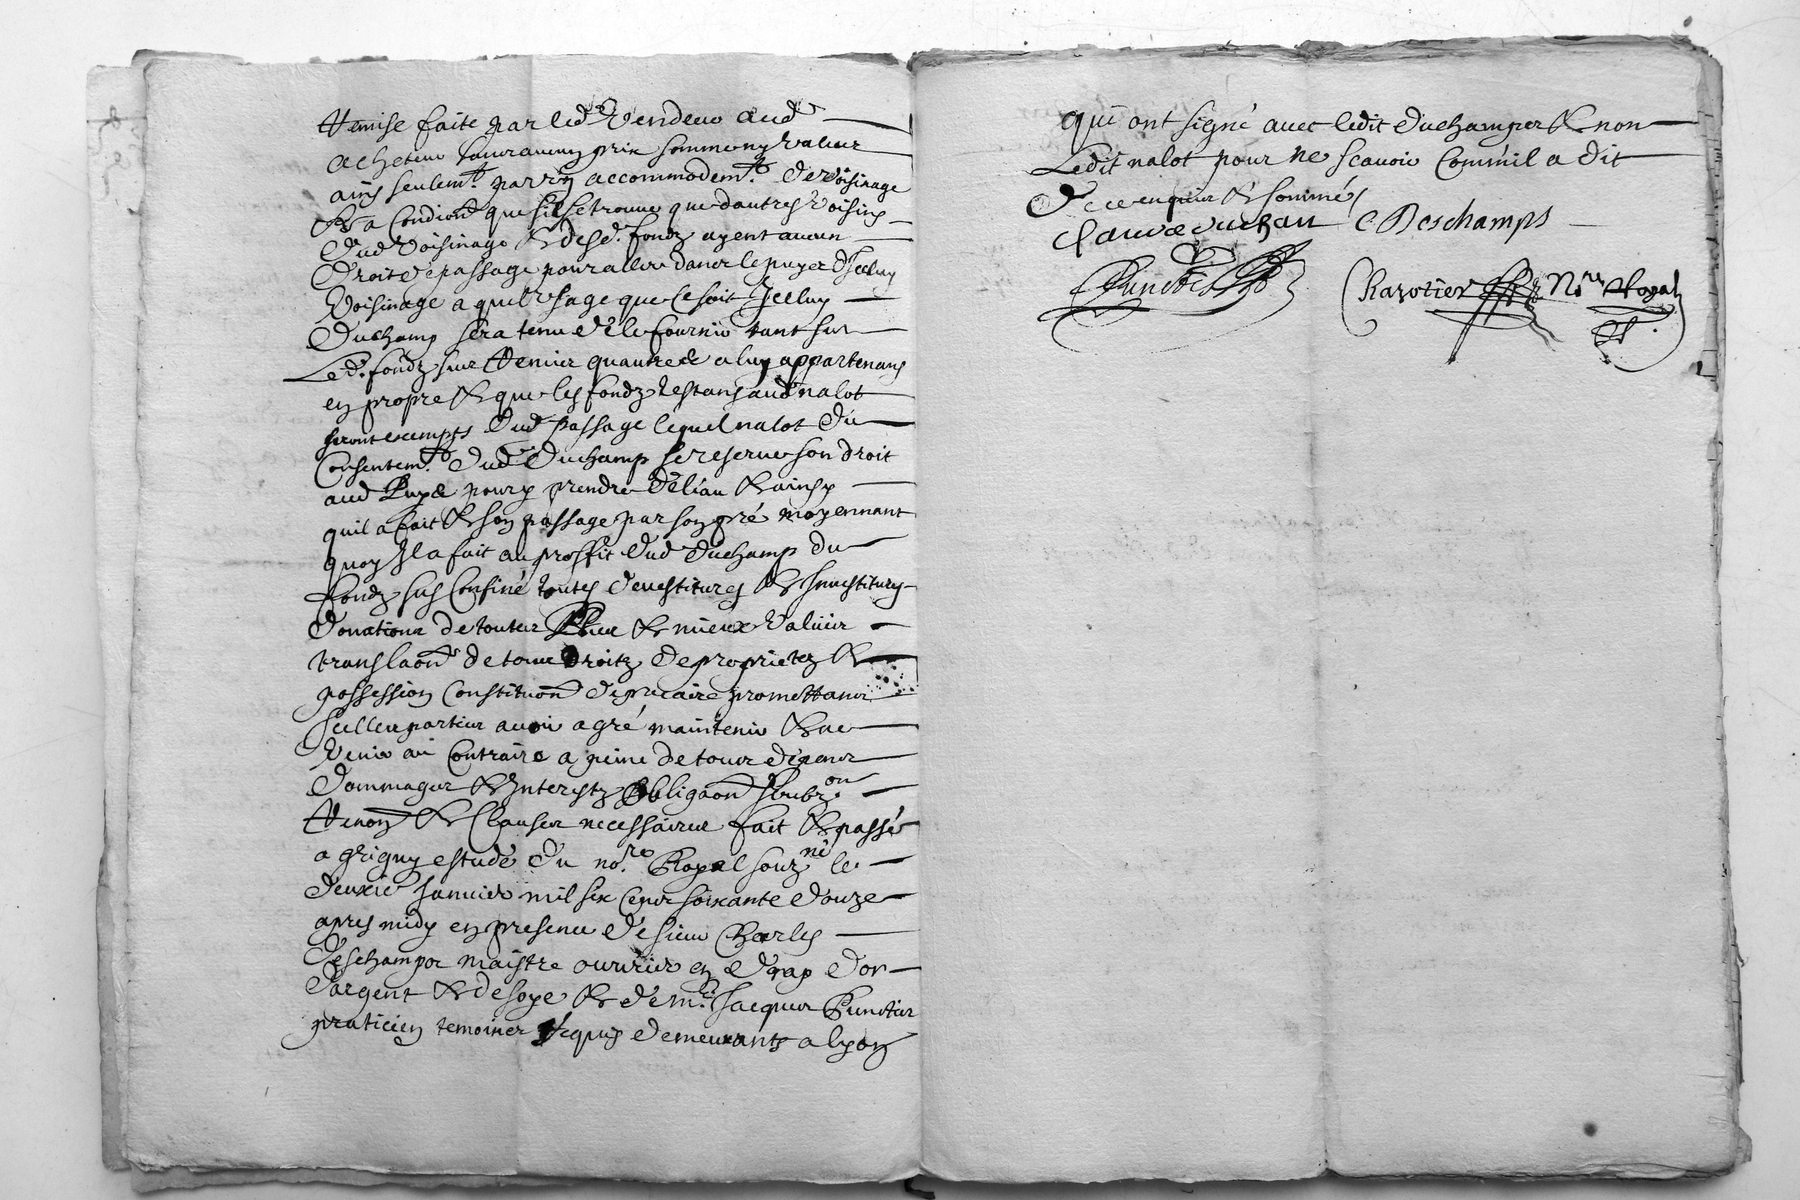 Remise faite par led vendeur aud
achepteur sans aucung prix somme ny valeur
ains seulemt. par ung accommodemt. de voisinage
& a condion que sil se trouve que dautres voisins
dud voisinage & desd. fondz ayent aucun
droit de passage pour aller dans le puyer d'icelluy
voisinage a quel usage que ce soit Jcelluy
Duchamp sera tenu de le fournir tant sur
Led. fondz sur a luy appartenans
en propre & que les fondz restans aud nalot
seront exempts dud passage lequel nalot du
Consentemt. dud Duchamp se reserve son droit
aud Puys pour y prendre de l'eau & ainsy
quil a fait & son passage par son pré moyennant
quoy Jl a fait au proffit dud Duchamp du
fondz sus confiné toutes devestitures & Jnvestitures
donations de toutes Plus & mieux valeur
translaon de tous droitz de proprietez &
possession Constituon de precaire promettans
Jcelles parties avoir agré maintenir & ne
venir au Contraire a peine de tous despens
dommages & Jnterestz obligaon
Renon & Clauses necessaires fait & passé
a grigny estude du nore. Royal souzné le
deuxie Janvier mil six cens soixante douze
apres midy en presence de sieur Charles
deschamps maistre ouvrier en drap d'or
d'argent & de soye & de me. Jacques Punctis
praticien temoins requis demeurants a lyon
qui ont signé avec ledit duchamp & non
Ledit nalot pour ne scavoir comm'il a dit
de ce enquis & sommé
Claude duchan C Deschamps
Punctis Charotier Nre Royal